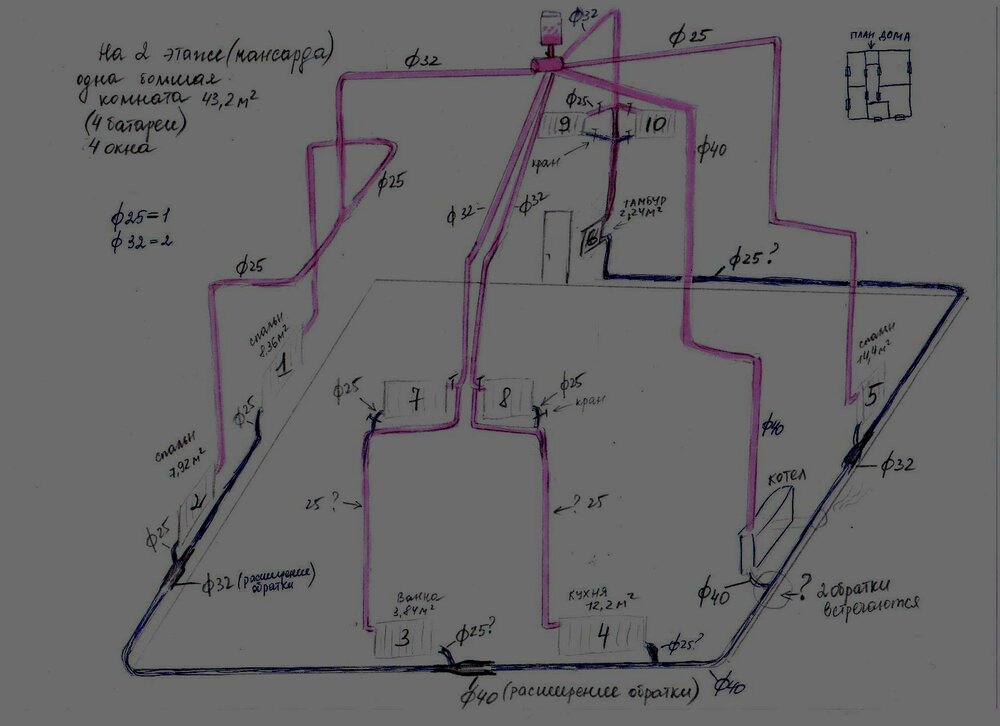 На 2 этаже (мансарда)
одна большая
комната 43,2 м²
(4 батареи)
4 окна
ф25=1
ф32=2
ф32
ф32
ф25
ПЛАН ДОМА
ф25
9
10
кран
ф40
ф25
ф32
ф32
ТАМБУР
2,24м²
6
ф25?
ф25
спальн
8,36 м²
1
спальн
14,4 м²
5
ф25
7
8
ф25
кран
ф25
ф40
спальн
7,92 м²
2
ф32
КОТЕЛ
25 ?
? 25
ф25
ф32 (расширение
обратки)
ф40
? 2 обратки
встречаются
Ванна
3,84м²
КУХНЯ
12,2 м²
3
ф25?
4
ф25?
ф40 (расширение обратки)
ф40